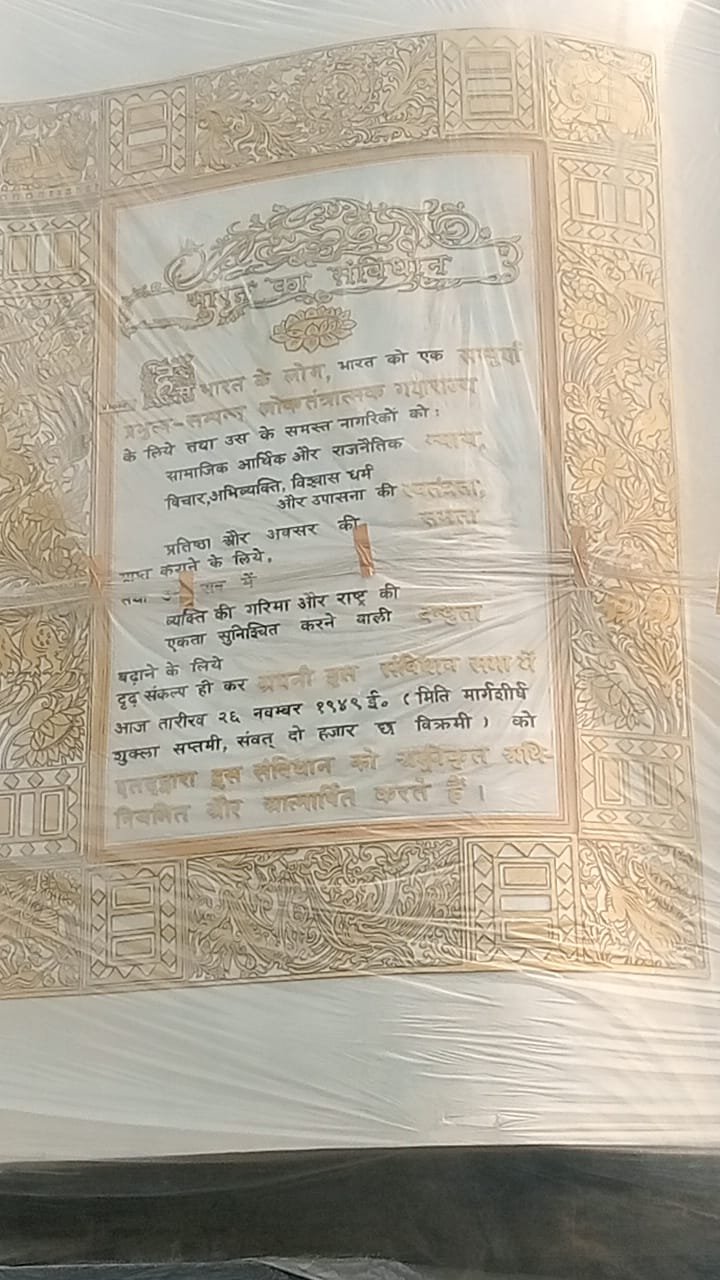 भारत का संविधान
हम भारत के लोग, भारत को एक सम्पूर्ण
प्रभुत्व-सम्पन्न लोकतंत्रात्मक गणराज्य
के लिये तथा उस के समस्त नागरिकों को:
सामाजिक आर्थिक और राजनैतिक न्याय,
विचार,अभिव्यक्ति, विश्वास धर्म
और उपासना की स्वतंत्रता,
प्रतिष्ठा और अवसर की समता
प्राप्त कराने के लिये,
तथा में
व्यक्ति की गरिमा और राष्ट्र की
एकता सुनिश्चित करने वाली बन्धुता
बढ़ाने के लिये
दृढ़ संकल्प हो कर अपनी इस संविधान सभा में
आज तारीख २६ नवम्बर १९४९ ई॰ (मिति मार्गशीर्ष
शुक्ला सप्तमी, संवत् दो हजार छ विक्रमी) को
एतद्द्वारा इस संविधान को अंगीकृत अधि-
नियमित और आत्मार्पित करते हैं।